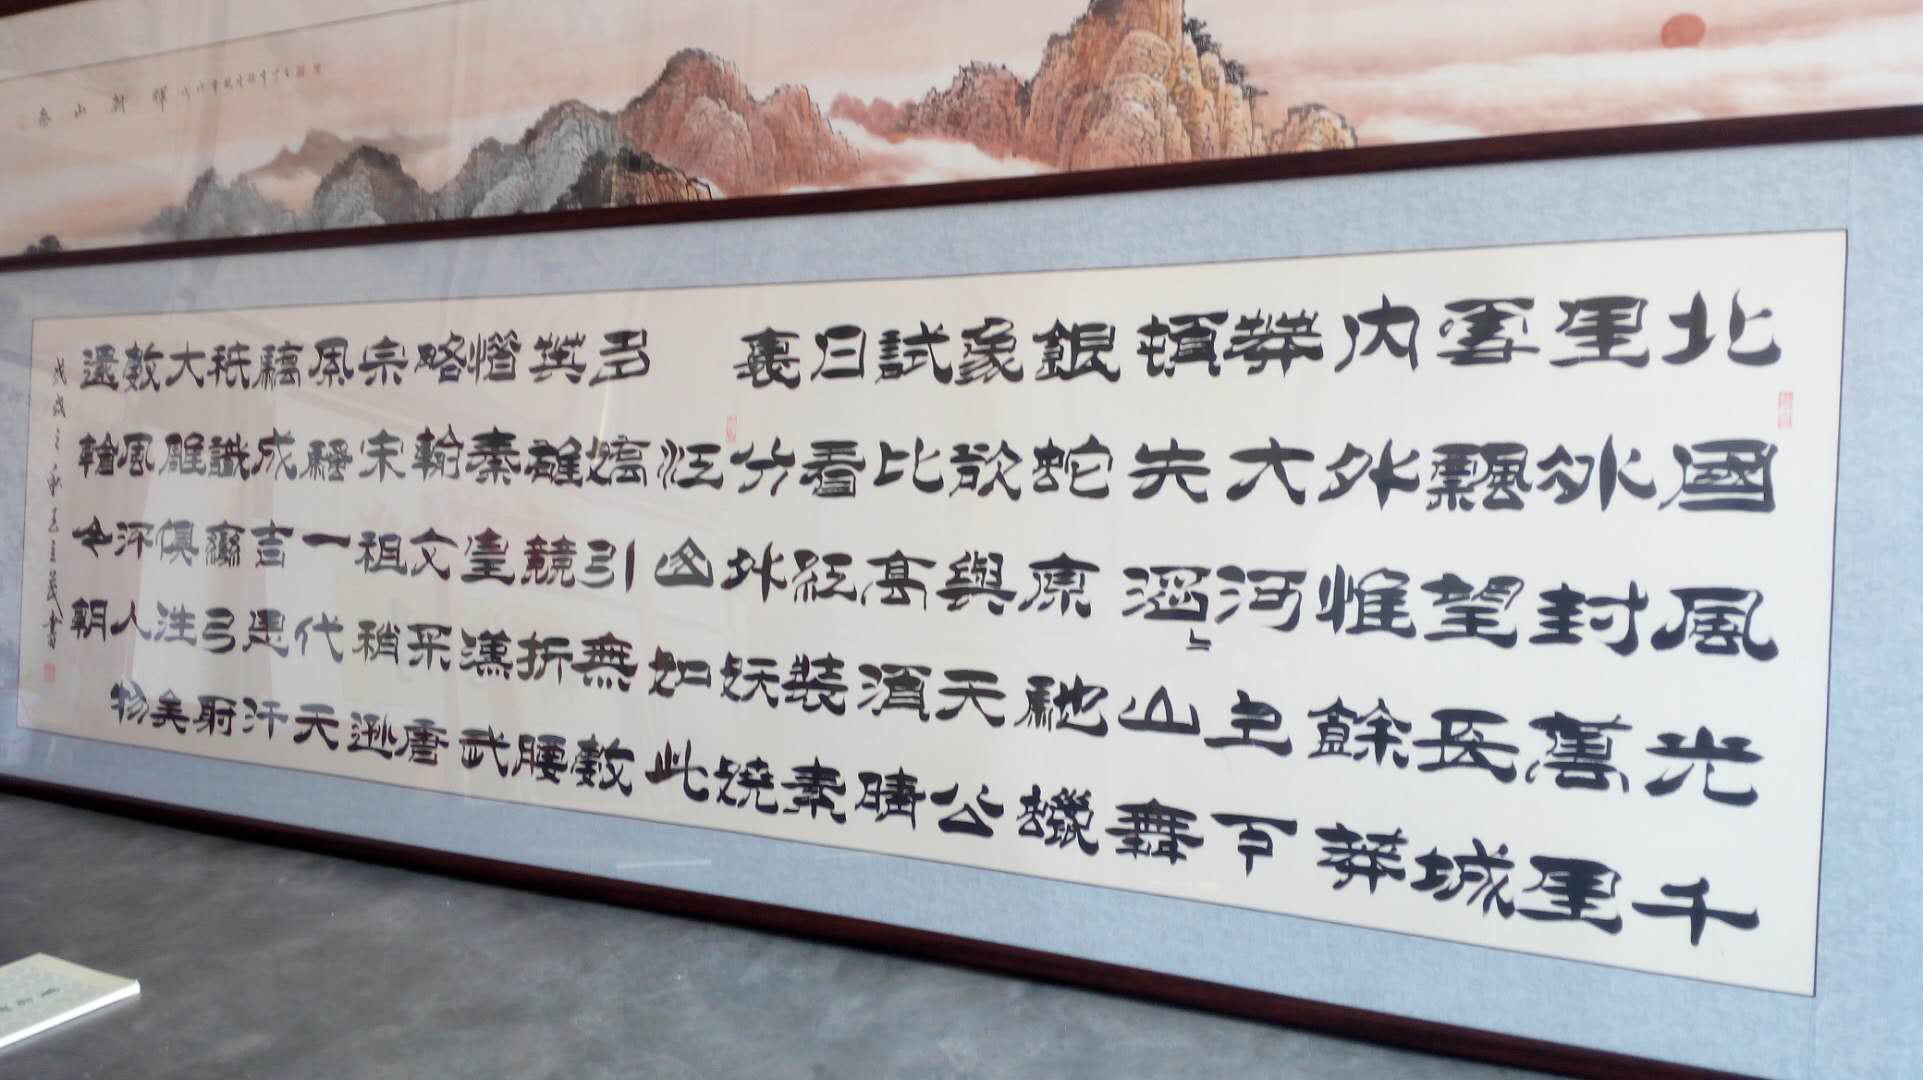 泰山朝暉
北國風光千
里冰封萬里
雪飄望長城
内外惟餘莽
莽大河上下
頓失滔〻山舞
銀蛇原馳蠟
象欲與天公
試比高須晴
日看紅裝素
裹分外妖嬈
江山如此
多嬌引無數
英雄競折腰
惜秦皇漢武
略輸文采唐
宗宋祖稍遜
風騷一代天
驕成吉思汗
祇識彎弓射
大雕俱往矣
數風流人物
還看今朝
戊戌之秋書